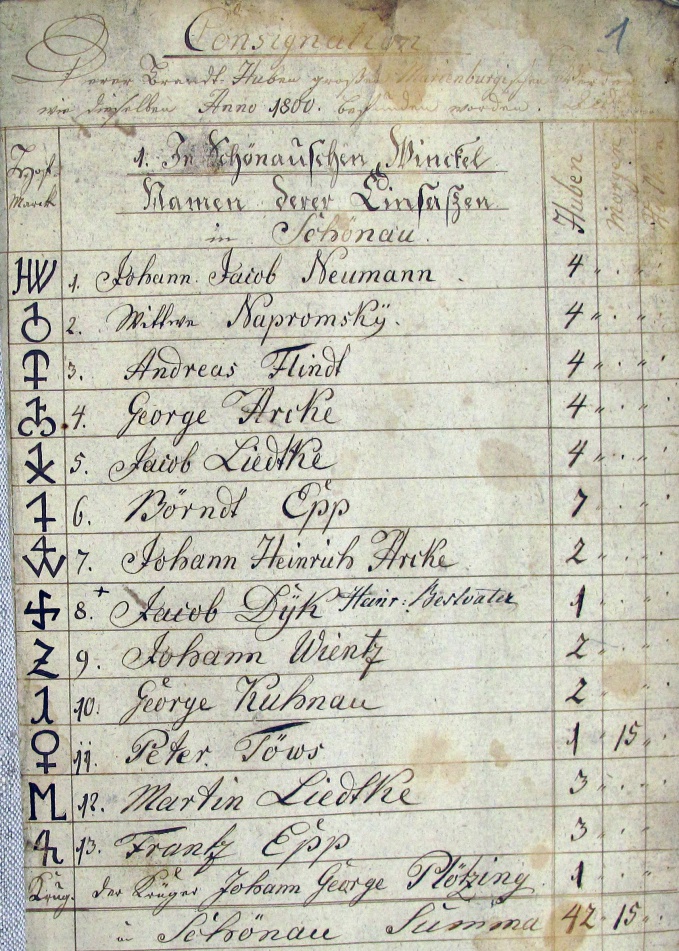 1
Consignation
Derer Brandt-Huben großen Marienburgschen
wie dieselben Anno 1800. befunden worden.
Hoff-
Marck
1. In Schönauschen Winckel
Namen derer Einsaßen
in Schönau.
Huben
Morgen
HW 1. Johann Jacob Neumann 4 " . "
2. Wittwe Napromskÿ. 4 " . "
3. Andreas Flindt 4 " . "
4. George Arcke 4 " . "
5. Jacob Liedtke 4 " . "
6. Börndt Epp 7 " . "
7. Johann Heinrich Arcke 2 " . "
8. + Jacob Dÿk Heinr: Bestvater 1 " . "
9. Johann Wientz 2 " . "
10. George Kuhnau 2 " . "
11. Peter Töws 1 15 "
12. Martin Liedtke 3 " . "
13. Frantz Epp 3 " . "
Krug. der Krüger Johann George Plötzing 1 " . "
in Schönau Summa 42 15 "